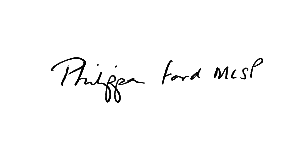 Philippa Ford MCSP